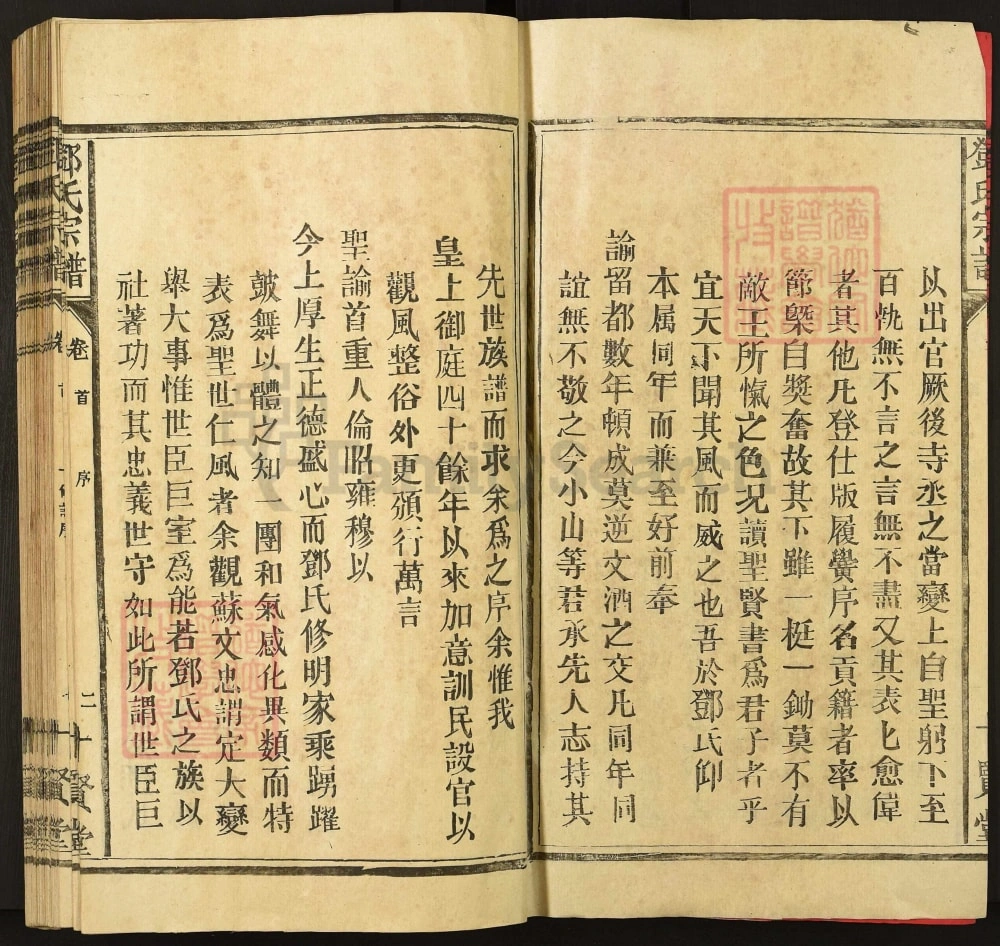 鄧氏宗譜
賢堂
以出官厥後寺丞之當變上自聖躬下至
百執無不言之言無不盡又其表匕愈偉
者其他凡登仕版履黌序名貢籍者率以
節槩自奬奮故其下雖一梃一鋤莫不有
敵王所愾之色況讀聖賢書爲君子者乎
宜天下聞其風而威之也吾於鄧氏仰
本属同年而兼至好前奉
諭留都數年頓成莫逆文酒之交凡同年同
誼無不敬之今小山等君承先人志持其
先世族譜而求余爲之序余惟我
皇上御庭四十餘年以來加意訓民設官以
觀風整俗外更頒行萬言
聖諭首重人倫昭雍穆以
今上厚生正德盛心而鄧氏修明家乘踴躍
鼓舞以體之知一團和氣感化異類而特
表爲聖世仁風者余觀蘇文忠謂定大變
舉大事惟世臣巨室爲能若鄧氏之族以
社著功而其忠義世守如此所謂世臣巨
鄧氏宗譜
卷首
序
二
賢堂
FamilySearch